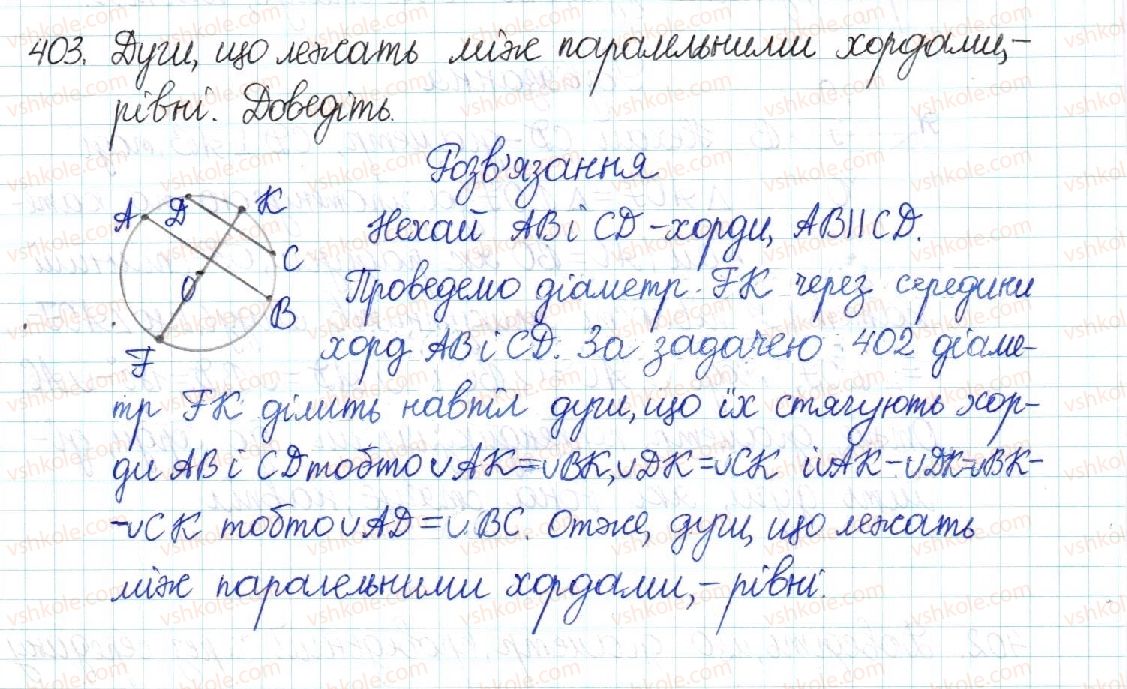 403. Дуги, що лежать між паралельними хордами,-
рівні. Доведіть.
Розв'язання
A D K
C
O
B
F
Нехай AB і CD - хорди, AB || CD.
Проведемо діаметр FK через середини
хорд AB і CD. За задачею 402 діаме-
тр FK ділить навпіл дуги, що їх стягують хор-
ди AB і CD тобто ∪AK=∪BK, ∪DK=∪CK і ∪AK-∪DK=∪BK-
-∪CK тобто ∪AD=∪BC. Отже, дуги, що лежать
між паралельними хордами, - рівні.